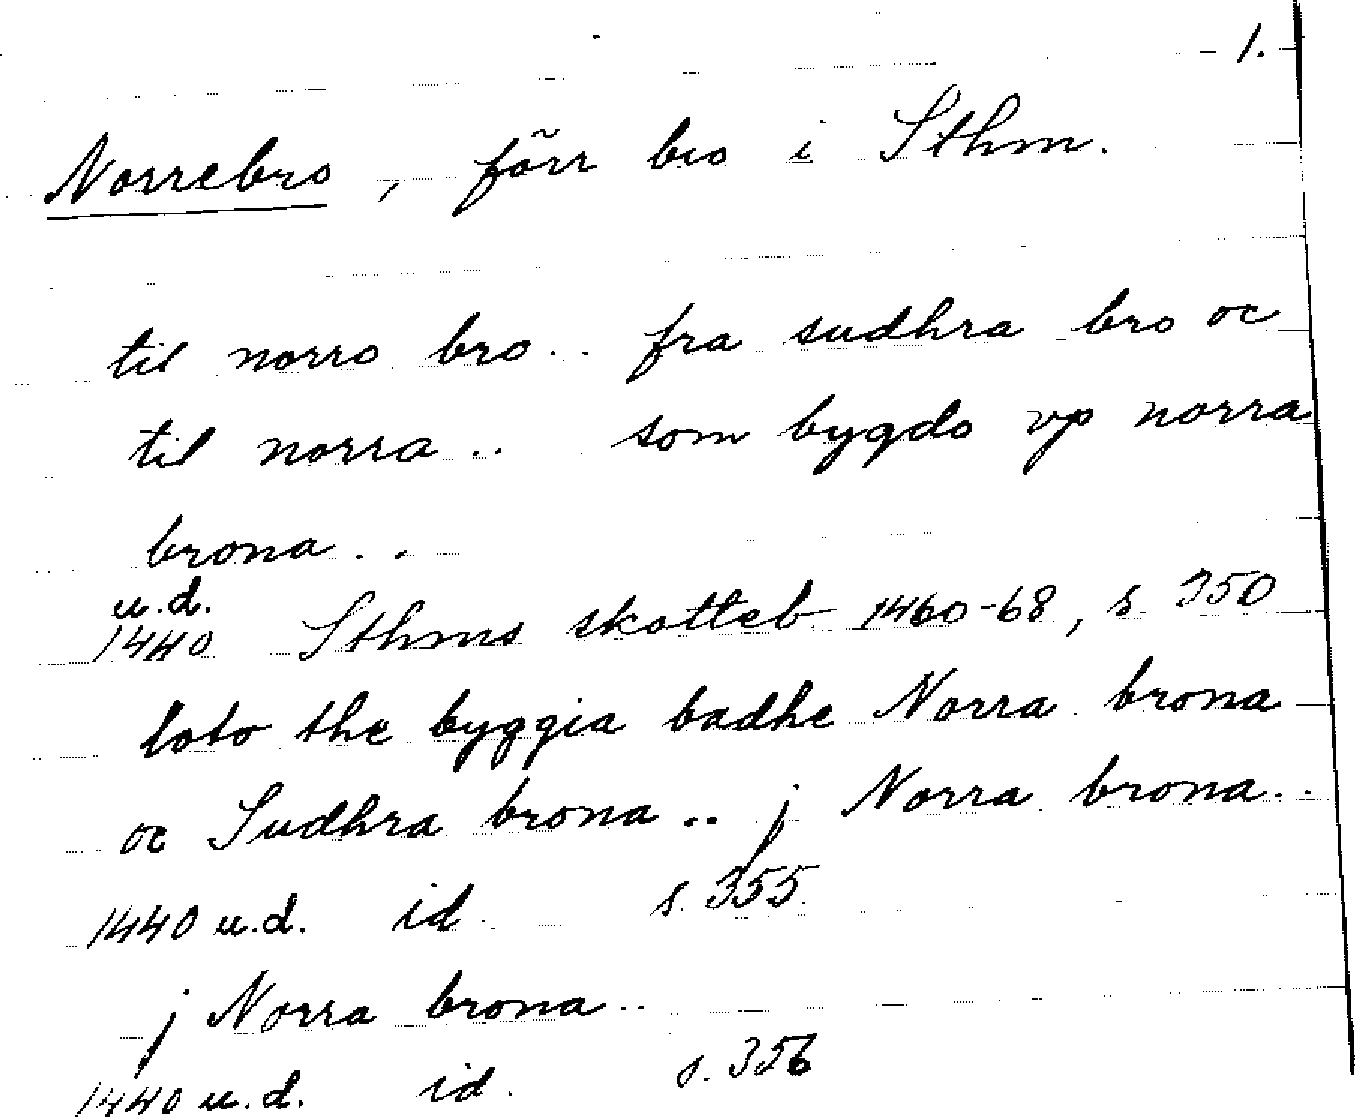 1.
Norrebro, förr bro i Sthm.
til norro bro.. fra sudhra bro oc
til norra.. som bygdo vp norra
brona..
u.d.
1440 Sthms skotteb 1460-68, s. 350
loto the byggia badhe Norra brona
oc Sudhra brona.. j Norra brona..
1440 u.d. id. s. 355.
j Norra brona..
1440 u.d. id. s. 356